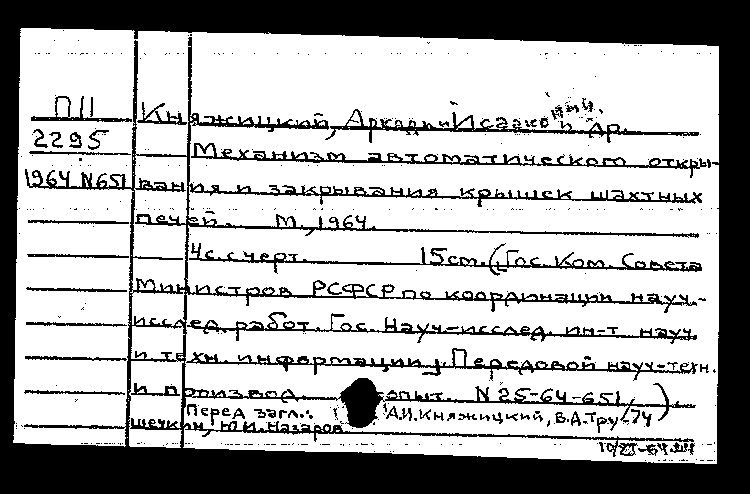 ПII Княжицкий, Аркадий Исаакович. и др.
2295 Механизм автоматического откры-
1964 N651 вания и закрывания крышек шахтных
печей. М., 1964.
4с. с черт. 15 см. (Гос. Ком. Совета
Министров РСФСР по координации науч.-
исслед. работ. Гос. Науч-исслед. ин-т науч.
и техн. информации; Передовой науч-техн.
и производ. опыт. N 25-64-651/74).
Перед загл.: А.И. Княжицкий, В.А. Тру-
шечкин, Ю.И. Назаров